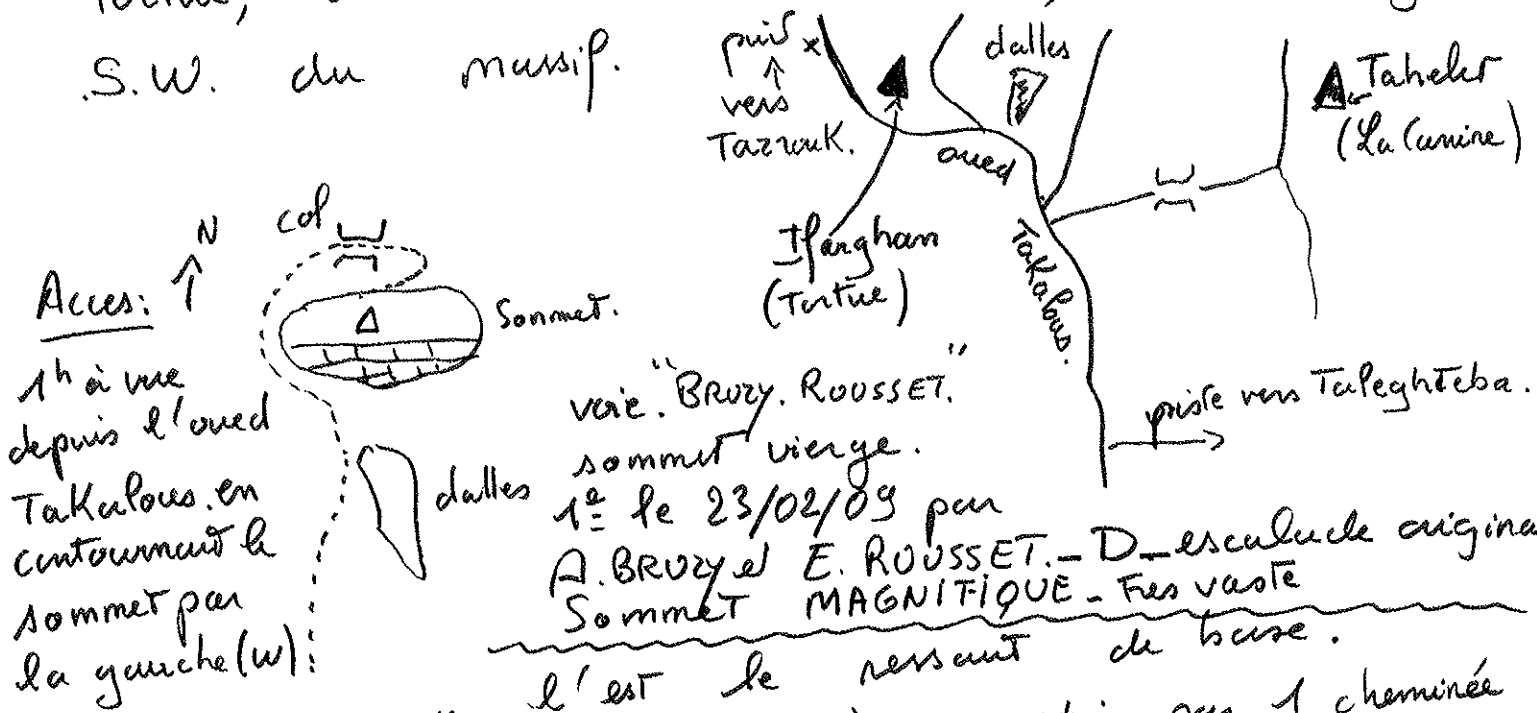 S.W. du massif.
puit x
vers
Tazrouk.
dalles
oued
Takalous.
Tahelet
(La Canine)
Ifarghan
(Tortue)
piste vers Taleghteba.
N
col
Sommet.
dalles
Acces:
1h à vue
depuis l'oued
Takalous. en
contournant le
sommet par
la gauche (W)
voie. "BRUZY. ROUSSET."
sommet vierge.
1e le 23/02/09 par
A. BRUZY et E. ROUSSET. _ D _ escalade origina
Sommet MAGNIFIQUE _ Tres vaste
l'est le ressaut de base.
par 1 cheminée